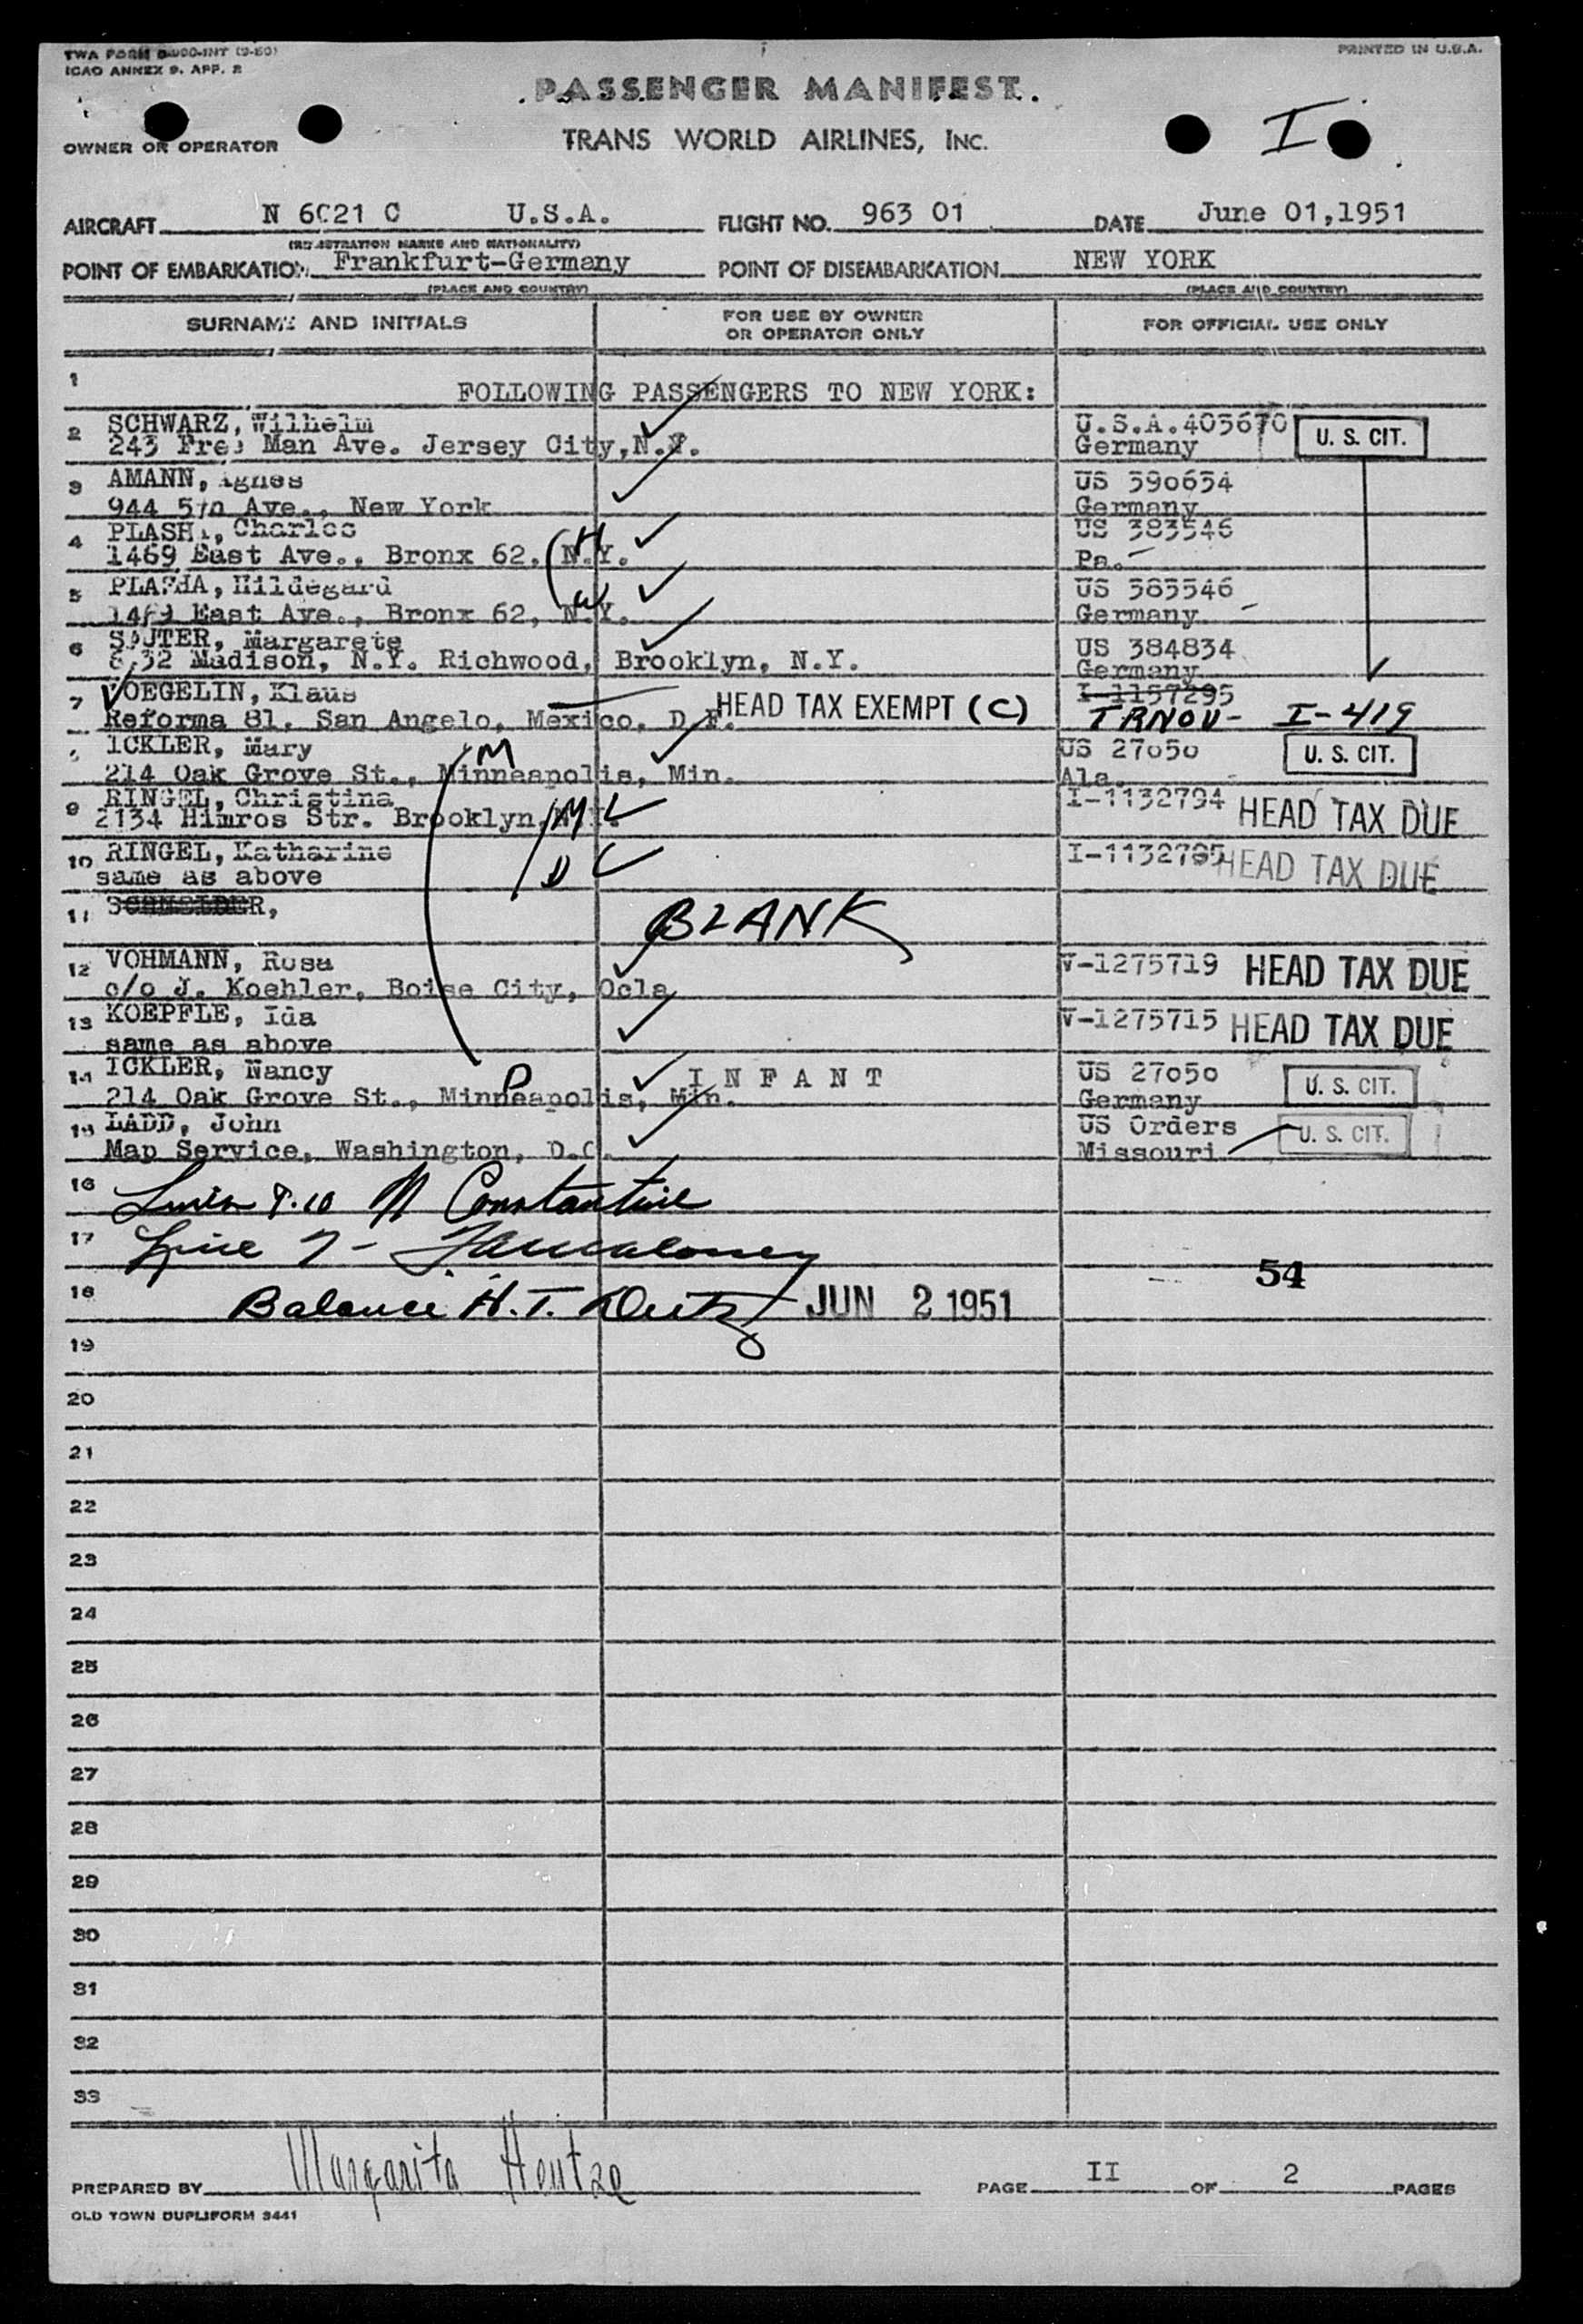 TWA FORM INT (9-50)
ICAO ANNEX 9. APP. 2
PRINTED IN U.S.A.
PASSENGER MANIFEST.
OWNER OR OPERATOR
TRANS WORLD AIRLINES, INC.
I
AIRCRAFT N 6021 C U.S.A. FLIGHT NO. 963 01 DATE June 01,1951
(REGISTRATION MARKS AND NATIONALITY)
POINT OF EMBARKATION Frankfurt-Germany POINT OF DISEMBARKATION NEW YORK
(PLACE AND COUNTRY) (PLACE AND COUNTRY)
SURNAME AND INITIALS
FOR USE BY OWNER
OR OPERATOR ONLY
FOR OFFICIAL USE ONLY
1
FOLLOWING PASSENGERS TO NEW YORK:
2 SCHWARZ, Wilhelm U.S.A.403670
243 Free Man Ave. Jersey City, Germany U. S. CIT.
3 AMANN, Agnes US 390654
944 5th Ave., New York Germany
4 PLASHA, Charles US 383546
1469 East Ave., Bronx 62, N.Y. H Pa.
5 PLASHA, Hildegard US 383546
1469 East Ave., Bronx 62, N.Y. W Germany
6 SAUTER, Margarete US 384834
Madison, N.Y. Richwood, Brooklyn, N.Y. Germany
7 VOEGELIN, Klaus I-1157295
Reforma 81, San Angelo, Mexico, D.F. HEAD TAX EXEMPT (C) TRNOV- I-419
ICKLER, Mary M US 27050 U. S. CIT.
214 Oak Grove St., Minneapolis, Min. Ala.
9 RINGEL, Christina I-1132794 HEAD TAX DUE
2134 Himros Str. Brooklyn, M
10 RINGEL, Katharine I-1132795 HEAD TAX DUE
same as above D
11 SCHNEIDER,
BLANK
12 VOHMANN, Rosa V-1275719 HEAD TAX DUE
c/o J. Koehler, Boise City, Ocla
13 KOEPFLE, Ida V-1275715 HEAD TAX DUE
same as above
14 ICKLER, Nancy D INFANT US 27050 U. S. CIT.
214 Oak Grove St., Minneapolis, Min. Germany
15 LADD, John US Orders U. S. CIT.
Map Service, Washington, D.C. Missouri
16 9.10 Constantine
17 Line 7-
54
18 Balance H.T. JUN 2 1951
19
20
21
22
23
24
25
26
27
28
29
30
31
32
33
PREPARED BY Margarita Hentze PAGE II OF 2 PAGES
OLD TOWN DUPLIFORM 3441